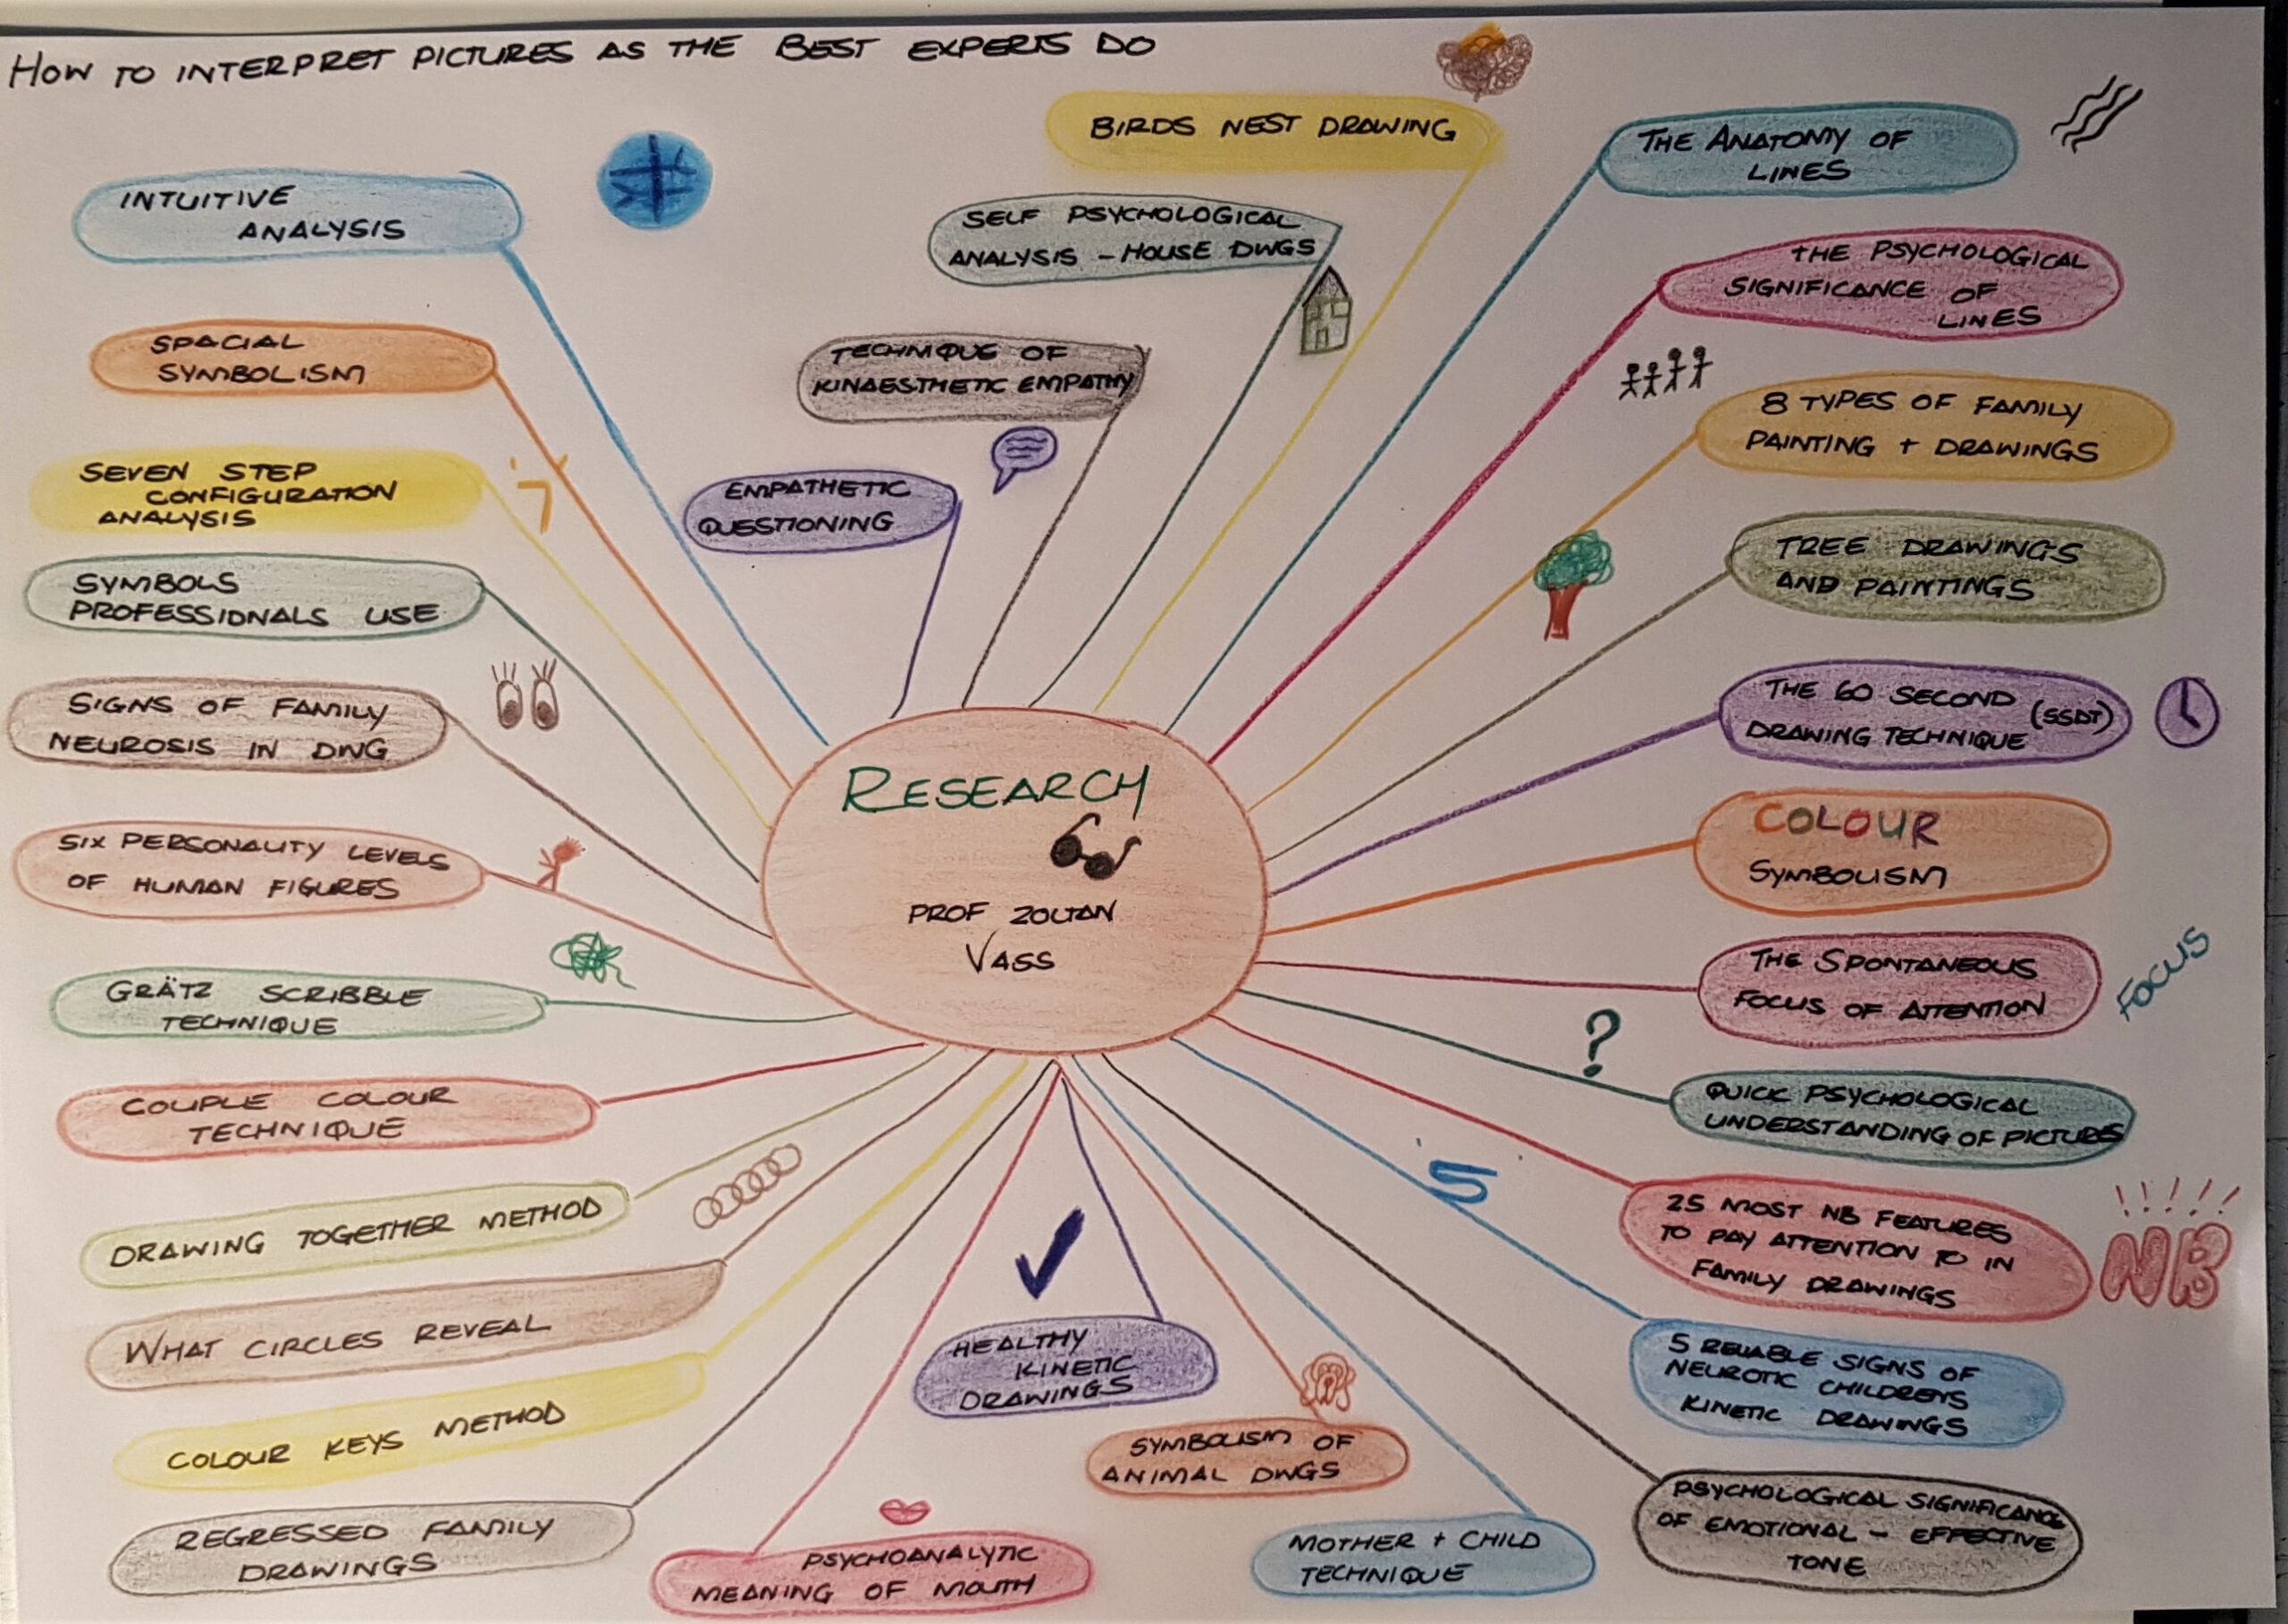 HOW TO INTERPRET PICTURES AS THE BEST EXPERTS DO
INTUITIVE
ANALYSIS
SPACIAL
SYMBOLISM
SEVEN STEP
CONFIGURATION
ANALYSIS
7
SYMBOLS
PROFESSIONALS USE
SIGNS OF FAMILY
NEUROSIS IN DWG
SIX PERSONALITY LEVELS
OF HUMAN FIGURES
GRÄTZ SCRIBBLE
TECHNIQUE
COUPLE COLOUR
TECHNIQUE
DRAWING TOGETHER METHOD
WHAT CIRCLES REVEAL
COLOUR KEYS METHOD
REGRESSED FAMILY
DRAWINGS
EMPATHETIC
QUESTIONING
TECHNIQUE OF
KINAESTHETIC EMPATHY
SELF PSYCHOLOGICAL
ANALYSIS - HOUSE DWGS
BIRDS NEST DRAWING
RESEARCH
PROF ZOLTAN
VASS
PSYCHOANALYTIC
MEANING OF MOUTH
HEALTHY
KINETIC
DRAWINGS
SYMBOLISM OF
ANIMAL DWGS
MOTHER + CHILD
TECHNIQUE
THE ANATOMY OF
LINES
THE PSYCHOLOGICAL
SIGNIFICANCE OF
LINES
8 TYPES OF FAMILY
PAINTING + DRAWINGS
TREE DRAWINGS
AND PAINTINGS
THE 60 SECOND (SSDT)
DRAWING TECHNIQUE
COLOUR
SYMBOLISM
THE SPONTANEOUS
FOCUS OF ATTENTION
FOCUS
?
QUICK PSYCHOLOGICAL
UNDERSTANDING OF PICTURES
25 MOST NB FEATURES
TO PAY ATTENTION TO IN
FAMILY DRAWINGS
!!!!!!
NB
5
5 RELIABLE SIGNS OF
NEUROTIC CHILDRENS
KINETIC DRAWINGS
PSYCHOLOGICAL SIGNIFICANCE
OF EMOTIONAL - EFFECTIVE
TONE